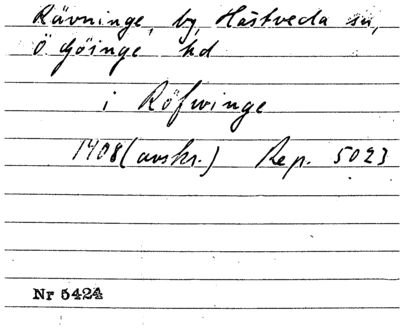 Rävninge, by, Hästveda sn,
Ö Göinge hd
i Röfwinge
1408 (avskr.) Rep. 5023
Nr 5424